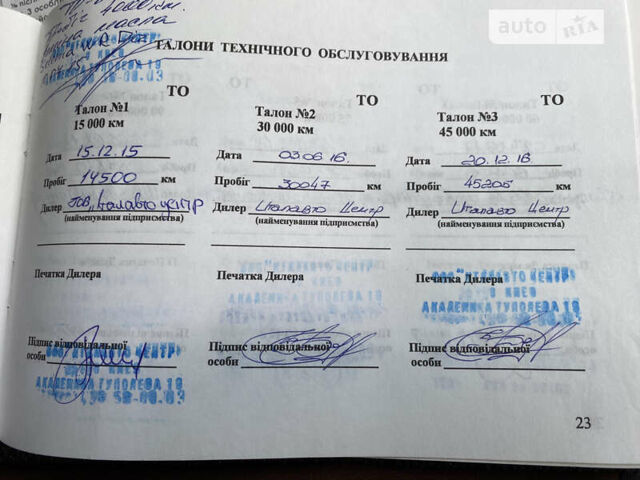 4000 км.
масла
auto RIA
ТАЛОНИ ТЕХНІЧНОГО ОБСЛУГОВУВАННЯ
АКАДЕМИКА ТУПОЛЕВА 19
ТО
ТО
ТО
Талон №1
15 000 км
Талон №2
30 000 км
Талон №3
45 000 км
Дата 15.12.15
Дата 03.06.16.
Дата 20.12.16
Пробіг 14500 км
Пробіг 30047 км
Пробіг 45205 км
Дилер ТОВ „Італавто центр
Дилер Италавто Центр
Дилер Италавто Центр
(найменування підприємства)
(найменування підприємства)
(найменування підприємства)
Печатка Дилера
Печатка Дилера
Печатка Дилера
ООО "ИТАЛАВТО ЦЕНТР"
г КИЕВ
АКАДЕМИКА ТУПОЛЕВА 19
Підпис відповідальної
особи
Підпис відповідальної
особи
Підпис відповідальної
особи
ООО "ИТАЛАВТО ЦЕНТР"
г КИЕВ
АКАДЕМИКА ТУПОЛЕВА 19
23